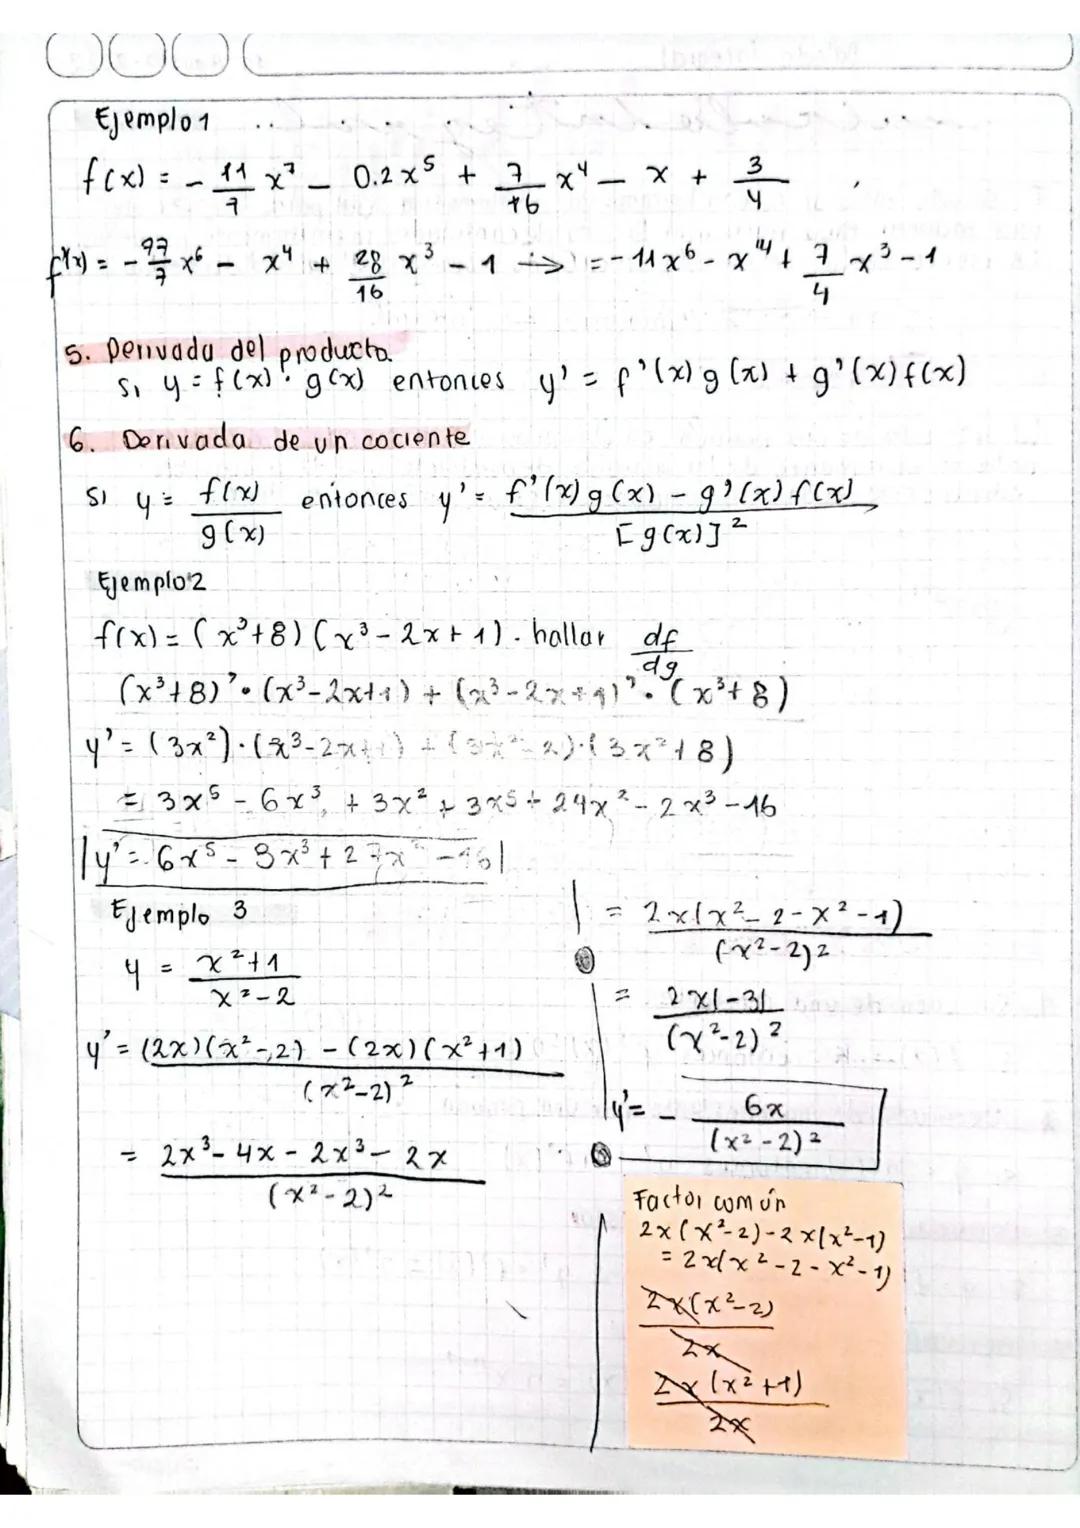 Ejemplo 1
f(x) = - 11/7 x⁷ - 0.2x⁵ + 7/16 x⁴ - x + 3/4
f'(x) = - 77/7 x⁶ - x⁴ + 28/16 x³ - 1 → = -11x⁶ - x⁴ + 7/4 x³ - 1
5. Derivada del producto.
Si y = f(x) · g(x) entonces y' = f'(x) g(x) + g'(x) f(x)
6. Derivada de un cociente
Si y = f(x)/g(x) entonces y' = f'(x) g(x) - g'(x) f(x) / [g(x)]²
Ejemplo 2
f(x) = (x³+8)(x³-2x+1). hallar df/dg
(x³+8)' · (x³-2x+1) + (x³-2x+1)' · (x³+8)
y' = (3x²)·(x³-2x+1) + (3x²-2)·(3x²+8)
= 3x⁵ - 6x³ + 3x² + 3x⁵ + 24x² - 2x³ - 16
y' = 6x⁵ - 8x³ + 27x² - 16
Ejemplo 3
y = x²+1 / x²-2
y' = (2x)(x²-2) - (2x)(x²+1) / (x²-2)²
= 2x³ - 4x - 2x³ - 2x / (x²-2)²
= 2x(x²-2-x²-1) / (x²-2)²
= 2x(-3) / (x²-2)²
y' = - 6x / (x²-2)²
Factor común
2x(x²-2)-2x(x²-1)
= 2x(x²-2-x²-1)
2x(x²-2) / 2x
2x(x²+1) / 2x